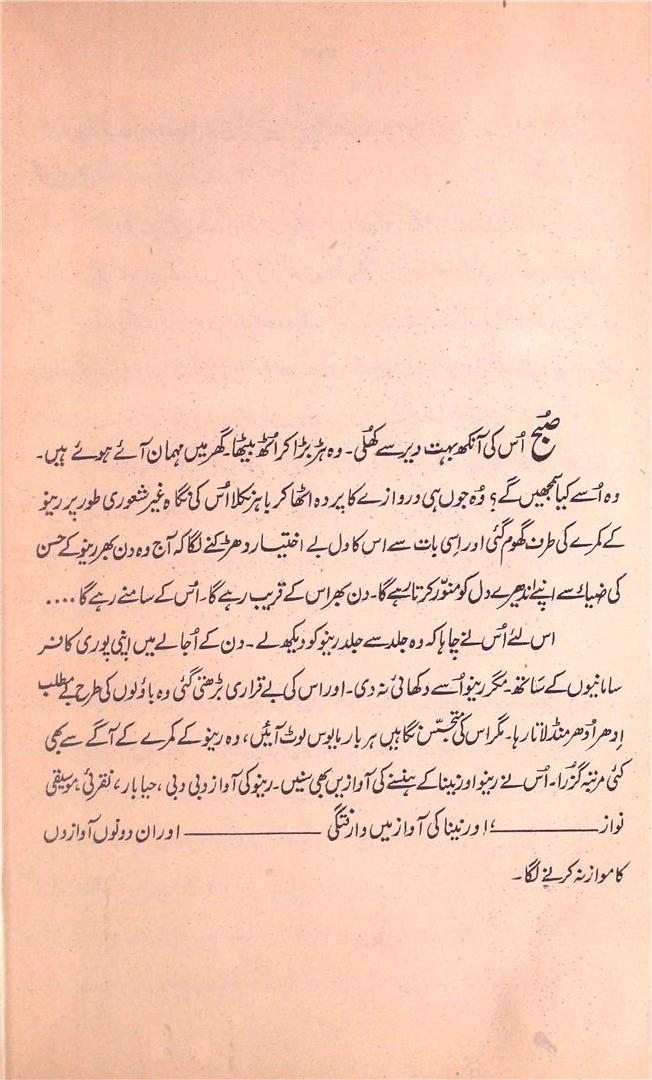 صبح اُس کی آنکھ بہت دیر سے کھلی۔ وہ ہڑبڑا کر اُٹھ بیٹھا۔ گھر میں مہمان آئے ہوئے ہیں۔
وہ اُسے کیا سمجھیں گے؟ وُہ جوں ہی دروازے کا پردہ اٹھا کر باہر نکلا اُس کی نگاہ غیر شعوری طور پر رینو
کے کمرے کی طرف گھوم گئی اور اِسی بات سے اس کا دل بے اختیار دھڑکنے لگا کہ آج وہ دن بھر رینو کے حسن
کی ضیاء سے اپنے اندھیرے دل کو منوّر کرتا رہے گا۔ دن بھر اس کے قریب رہے گا۔ اُس کے سامنے رہے گا ....
اس لئے اُس نے چاہا کہ وہ جلد سے جلد رینو کو دیکھ لے۔ دن کے اُجالے میں اپنی پوری کافر
سامانیوں کے ساتھ۔ مگر رینو اُسے دکھائی نہ دی۔ اور اس کی بے قراری بڑھتی گئی وہ باؤلوں کی طرح بے مطلب
اِدھر اُدھر منڈلاتا رہا۔ مگر اس کی متجسّس نگاہیں ہر بار مایوس لوٹ آئیں، وہ رینو کے کمرے کے آگے سے بھی
کئی مرتبہ گزرا۔ اُس نے رینو اور نینا کے ہنسنے کی آوازیں بھی سنیں۔ رینو کی آواز دبی دبی، حیا بار، نقرئی، موسیقی
نواز ———؛ اور نینا کی آواز میں وارفتگی ——— اور ان دونوں آوازوں
کا موازنہ کرنے لگا۔